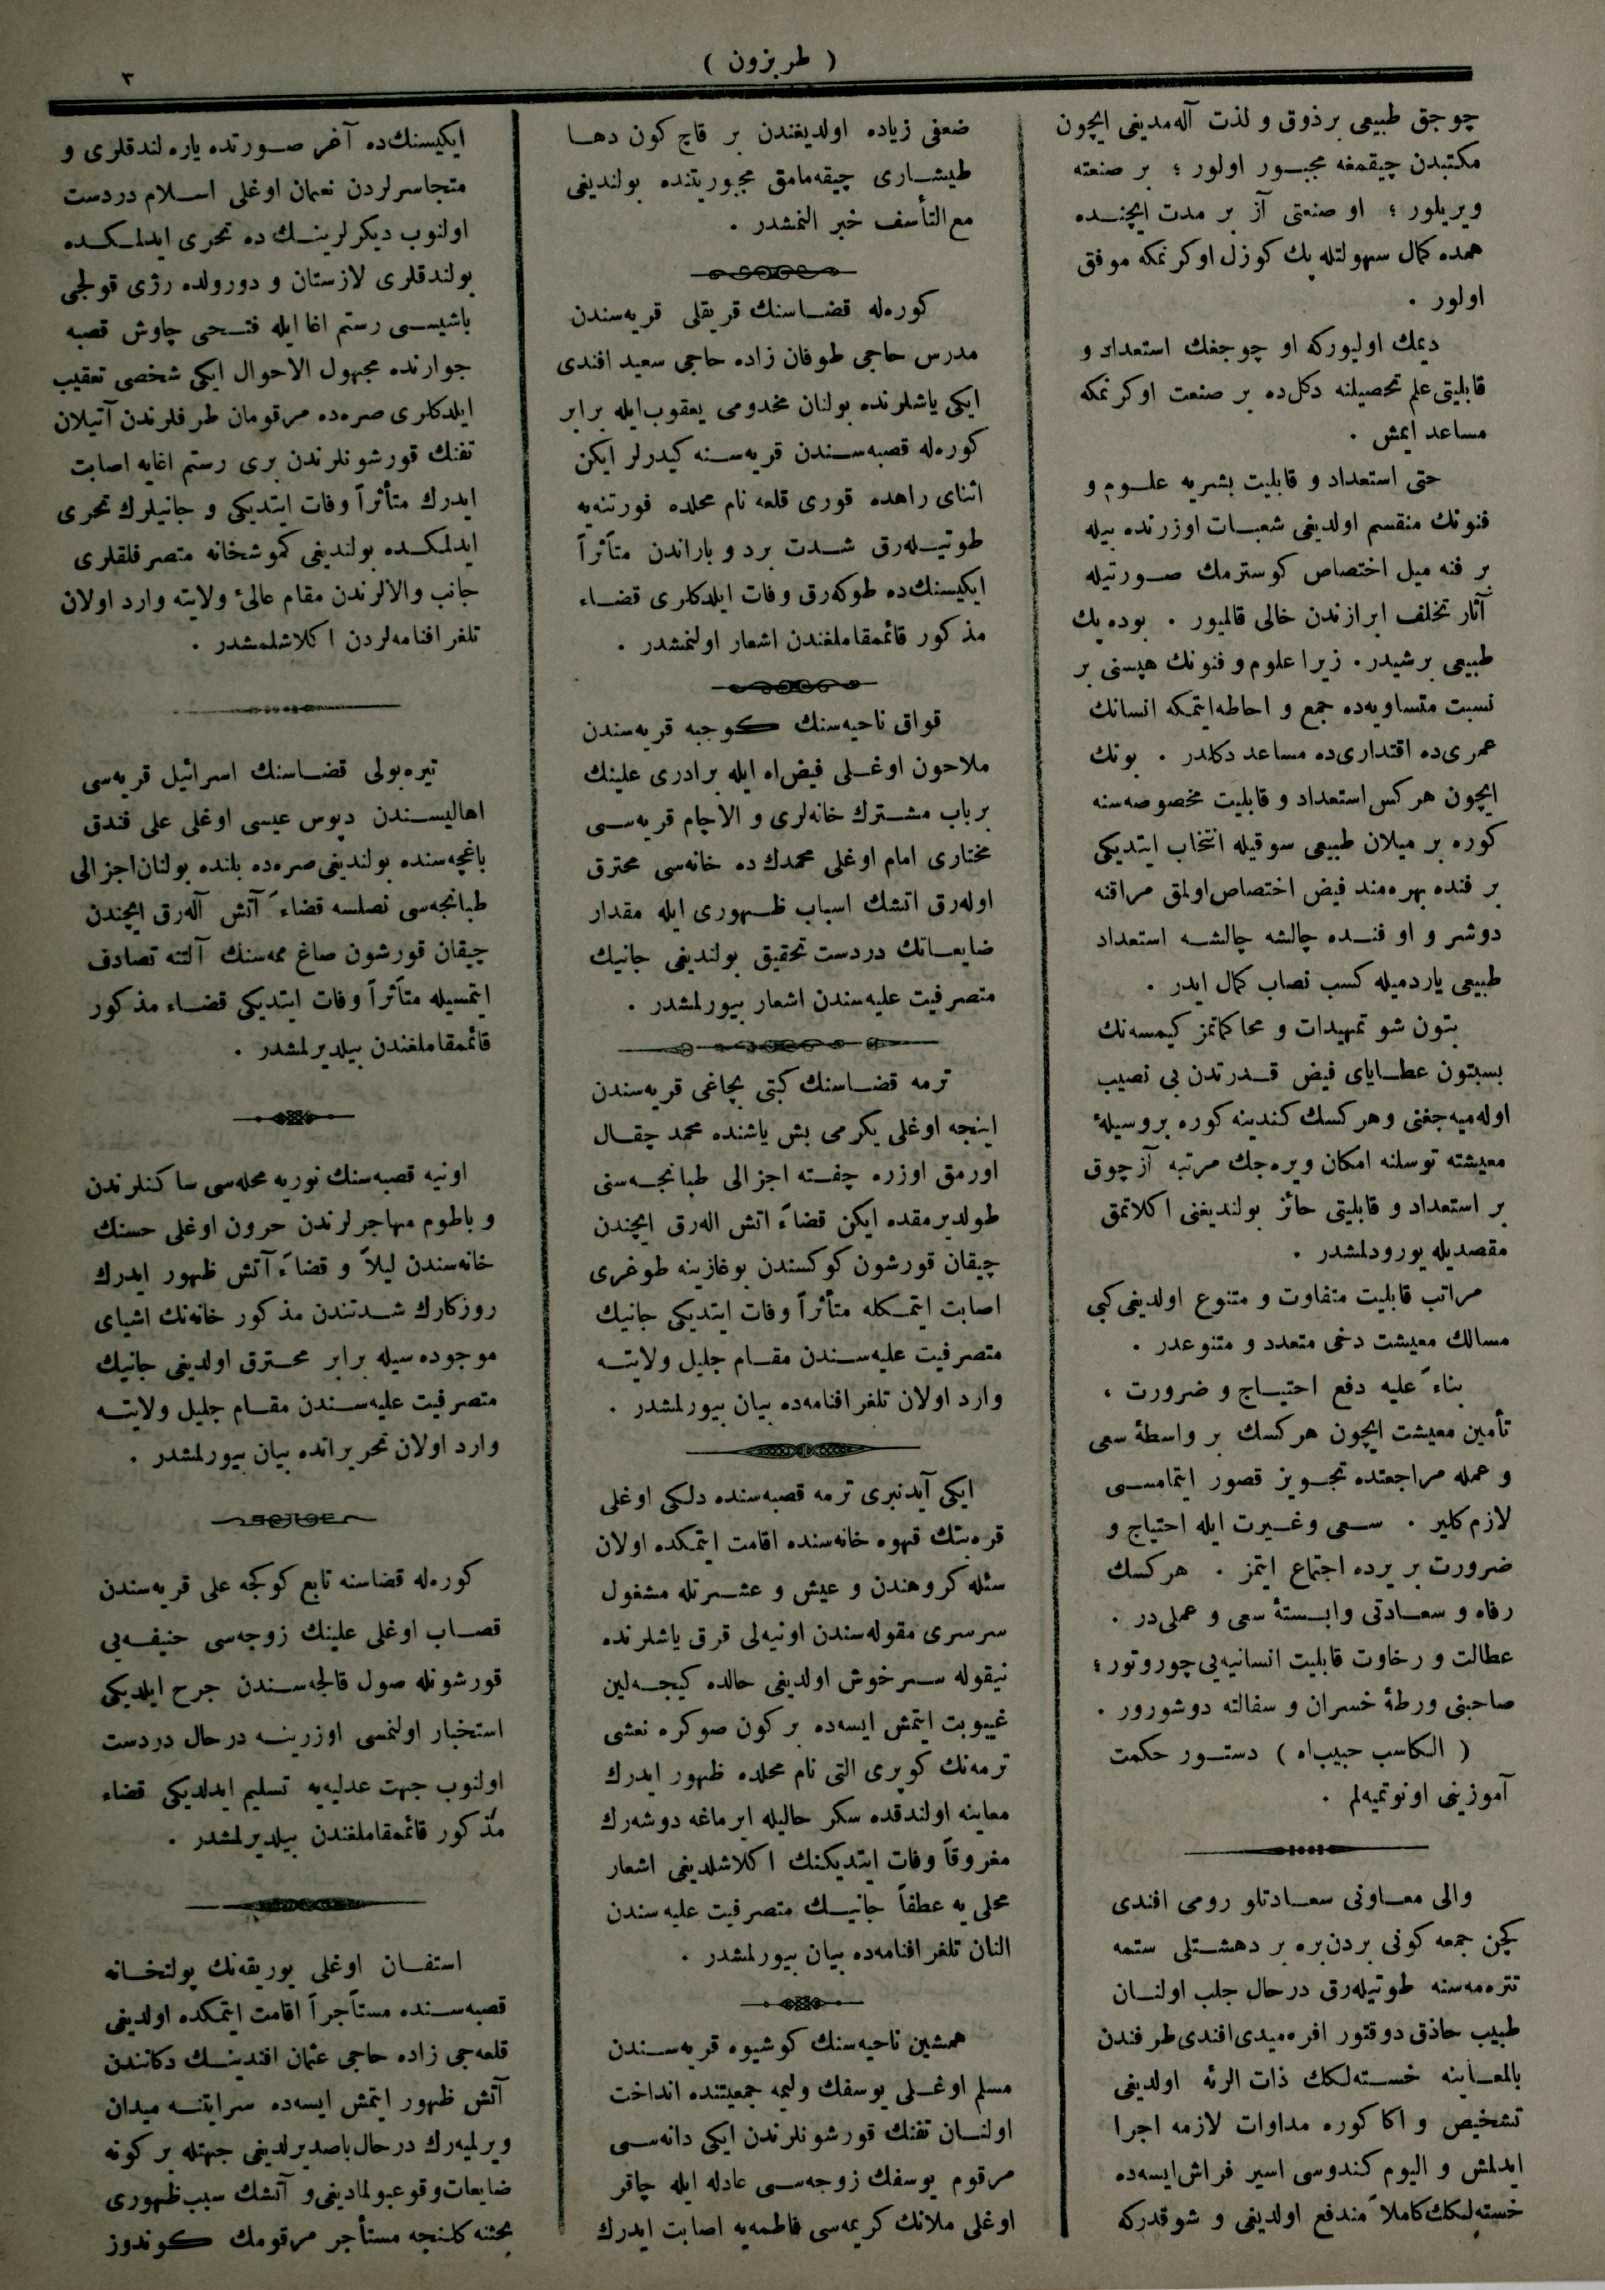 ( طربزون )
٣
چوجق طبیعی بر ذوق و لذت آله‌مدیغی ایچون
مكتبدن چیقمغه مجبـور اولور ؛ بر صنعته
ویریلور ؛ او صنعتی آز بر مدت ایچنـده
همده كمال سهولتله پك كوزل اوكرنمكه موفق
اولور .
دیمك اولیوركه او چوجغك استعداد و
قابلیتی علم تحصیلنه دكل‌ده بر صنعت اوكرنمكه
مساعد ایمش .
حتی استعداد و قابلیت بشریه علـوم و
فنونك منقسم اولدیغی شعبـات اوزرنده بیله
بر فنه میل اختصاص كوسترمك صـورتیله
آثار تخلف ابرازندن خالی قالمیور . بوده پك
طبیعی برشیدر . زیرا علوم و فنونك هپسنی بر
نسبت متساویه‌ده جمع و احاطه ایتمكه انسانك
عمری‌ده اقتداری‌ده مساعد دكلدر . بونك
ایچون هركس استعداد و قابلیت مخصوصه‌سنه
كوره بر میلان طبیعی سوقیله انتخاب ایتدیكی
بر فنده بهره‌مند فیض اختصاص اولمق مراقنه
دوشر و او فنـده چالشه چالشـه استعداد
طبیعی یاردمیله كسب نصاب كمال ایدر .
بتون شو تمهیدات و محاكماتمز كیمسه‌نك
بسبتون عطـایای فیض قـدرتدن بی نصیب
اوله‌میه‌جغنی و هركسك كندینه كوره بر وسیلهٔ
معیشته توسلنه امكان ویره‌جك مرتبه آز چوق
بر استعداد و قابلیتی حائز بولندیغنی اكلاتمق
مقصدیله یورودلمشدر .
مراتب قابلیت متفاوت و متنوع اولدیغی كبی
مسالك معیشت دخی متعدد و متنوعدر .
بناءً علیه دفع احتیـاج و ضرورت ،
تأمین معیشت ایچون هركسك بر واسطهٔ سعی
و عمله مراجعتده تجـویز قصور ایتمامـسی
لازم كلیر . سـعی وغـیرت ایله احتیاج و
ضرورت بر یرده اجتماع ایتمز . هركسك
رفاه و سعـادتی وابـستهٔ سعی و عملی‌در .
عطالت و رخاوت قابلیت انسانیه‌یی چوروتور ؛
صاحبنی ورطهٔ خسران و سفالته دوشورور .
( الكاسب حبیب‌اه ) دستـور حكمت
آموزینی اونوتمیه‌لم .
والی معـاونی سعـادتلو رومی افندی
كچن جمعه كونی بردن‌بره بر دهشـتلی ستمه
تتره‌مه‌سنه طوتیله‌رق درحال جلب اولنـان
طبیب حاذق دوقتور افره‌میدی افندی طرفندن
بالمعـاینه خسـته‌لكك ذات الرئه اولدیغی
تشخیص و اكا كوره مداوات لازمه اجرا
ایدلمش و الیوم كندوسی اسیر فراش ایسه‌ده
خسته‌لكك كاملاً مندفع اولدیغی و شو قدركه
ضعفی زیاده اولدیغندن بر قاچ كون دهـا
طیشـاری چیقه‌مامق مجبوریتنده بولندیغی
مع التأسف خبر النمشدر .
كوره‌له قضـاسنك قریقلی قریه‌سندن
مدرس حاجی طوفان زاده حاجی سعید افندی
ایكی یاشلرنده بولنان مخدومی یعقوب ایله برابر
كوره‌له قصبه‌سـندن قریه‌سـنه كیدرلر ایكن
اثنای راهده قوری قلعه نام محلده فورتنه‌یه
طوتیـله‌رق شـدت برد و باراندن متأثراً
ایكیسنك‌ده طوكه‌رق وفات ایلدكلری قضـاء
مذكور قائممقاملغندن اشعار اولنمشدر .
قواق ناحیه‌سنك كوجبه قریه‌سندن
ملاحون اوغـلی فیض‌اه ایله برادری علینك
برباب مشـترك خانه‌لری و الاچام قریه‌سـی
مختاری امام اوغلی محمدك ده خانه‌سی محترق
اوله‌رق اتشك اسباب ظـهوری ایله مقدار
ضایعـاتك دردست تحقیق بولندیغی جانیك
متصرفیت علیه‌سندن اشعار بیورلمشدر .
ترمه قضـاسنك كبتی بچاغی قریه‌سندن
اینجه اوغلی یكرمی بش یاشنده محمد چقـال
اورمق اوزره چفـته اجزالی طبانجـه‌سنی
طولدیرمقده ایكن قضاءً اتش اله‌رق ایچندن
چیقان قورشون كوكسندن بوغازینه طوغری
اصابت ایتمـكله متأثراً وفات ایتدیكی جانیك
متصرفیت علیه‌سـندن مقـام جلیل ولایتـه
وارد اولان تلغرافنامه‌ده بیان بیورلمشدر .
ایكی آیدنبری ترمه قصبه‌سنده دلكی اوغلی
قره‌بتك قهوه خانه‌سنده اقامت ایتمكده اولان
سئله كروهندن و عیش و عشـرتله مشغول
سرسری مقوله‌سندن اونیه‌لی قرق یاشلرنده
نیقوله سـرخوش اولدیغی حالده كیجـه‌لین
غیبوبت ایتمش ایسه‌ده بر كون صوكره نعشی
ترمه‌نك كوپری التی نام محلده ظهور ایدرك
معاینه اولندقده سكر حالیله ایرماغه دوشه‌رك
مغروقاً وفات ایتدیكنك اكلاشلدیغی اشعار
محلی یه عطفاً جانیـك متصرفیت علیه سندن
النان تلغرافنامه‌ده بیان بیورلمشدر .
همشین ناحیه‌سنك كوشیوه قریه‌سـندن
مسلم اوغـلی یوسفك ولیمه جمعیتنده انداخت
اولنـان تفنك قورشونلرندن ایكی دانه‌سـی
مرقوم یوسفك زوجه‌سـی عادله ایله چاقر
اوغلی ملانك كریمه‌سی فاطمه‌یه اصابت ایدرك
ایكیسنك‌ده آغر صـورتده یاره لندقلری و
متجاسرلردن نعمان اوغلی اسـلام دردست
اولنوب دیكرلرینـك ده تحری ایدلمـكـده
بولندقلری لازستان و دورولده رژی قولجی
باشیـسی رستم اغا ایله فتـحی چاوش قصبه
جوارنده مجهول الاحوال ایكی شخصی تعقیب
ایلدكلری صره‌ده مرقومان طرفلرندن آتیلان
تفنك قورشونلرندن بری رستم اغایه اصابت
ایدرك متأثراً وفات ایتدیكی و جانیلرك تحری
ایدلمكـده بولندیغی كموشخانه متصرفلقلری
جانب والالرندن مقام عالیٔ ولایته وارد اولان
تلغرافنامه‌لردن اكلاشلمشدر .
تیره‌بولی قضـاسنك اسرائیل قریه‌سی
اهالیسـندن دپوس عیسی اوغلی علی فندق
باغچه‌سنده بولندیغی صره‌ده بلنده بولنان اجزالی
طبانجه‌سی نصلسه قضاءً آتش آله‌رق ایچندن
چیقان قورشون صاغ ممه‌سنك آلتنه تصادف
ایتمسیله متأثراً وفات ایتدیكی قضـاء مذكور
قائممقاملغندن بیلدیرلمشدر .
اونیه قصبه‌سنك نوریه محله‌سی ساكنلرندن
و باطوم مهاجرلرندن حرون اوغلی حسنك
خانه‌سندن لیلاً و قضاءً آتش ظهور ایدرك
روزكارك شـدتندن مذكور خانه‌نك اشیای
موجوده‌سیله برابر محـترق اولدیغی جانیك
متصرفیت علیه‌سـندن مقـام جلیل ولایتـه
وارد اولان تحریراتده بیان بیورلمشدر .
كوره‌له قضاسنه تابع كوكجه علی قریه‌سندن
قصـاب اوغلی علینك زوجه‌سی حنیفـه‌یی
قورشونله صول قالجه‌سـندن جرح ایلدیكی
استخبار اولنمسی اوزرینـه درحال دردست
اولنوب جهت عدلیه‌یه تسلیم ایدلدیكی قضاء
مذكور قائممقاملغندن بیلدیرلمشدر .
استفـان اوغلی یوریقه‌نك پولتخـانه
قصبه‌سـنده مستأجراً اقامت ایتمكده اولدیغی
قلعه‌جی زاده حاجی عثمان افندینـك دكانندن
آتش ظهور ایتمش ایسه‌ده سرایتنـه میدان
ویرلمیه‌رك درحال باصدیرلدیغی جهتله بر كونه
ضایعات وقوعبولمادیغی و آتشك سبب ظهوری
بحثنه كلنجه مستأجر مرقومك كوندوز